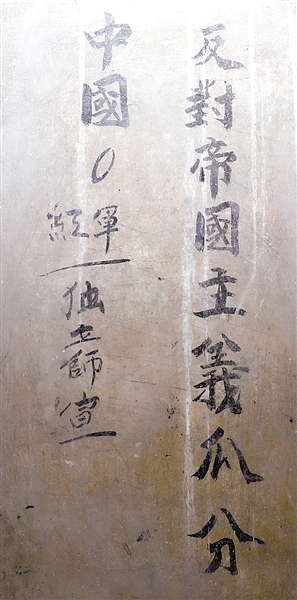 反對帝國主義瓜分
中國0
軍
独立師宣